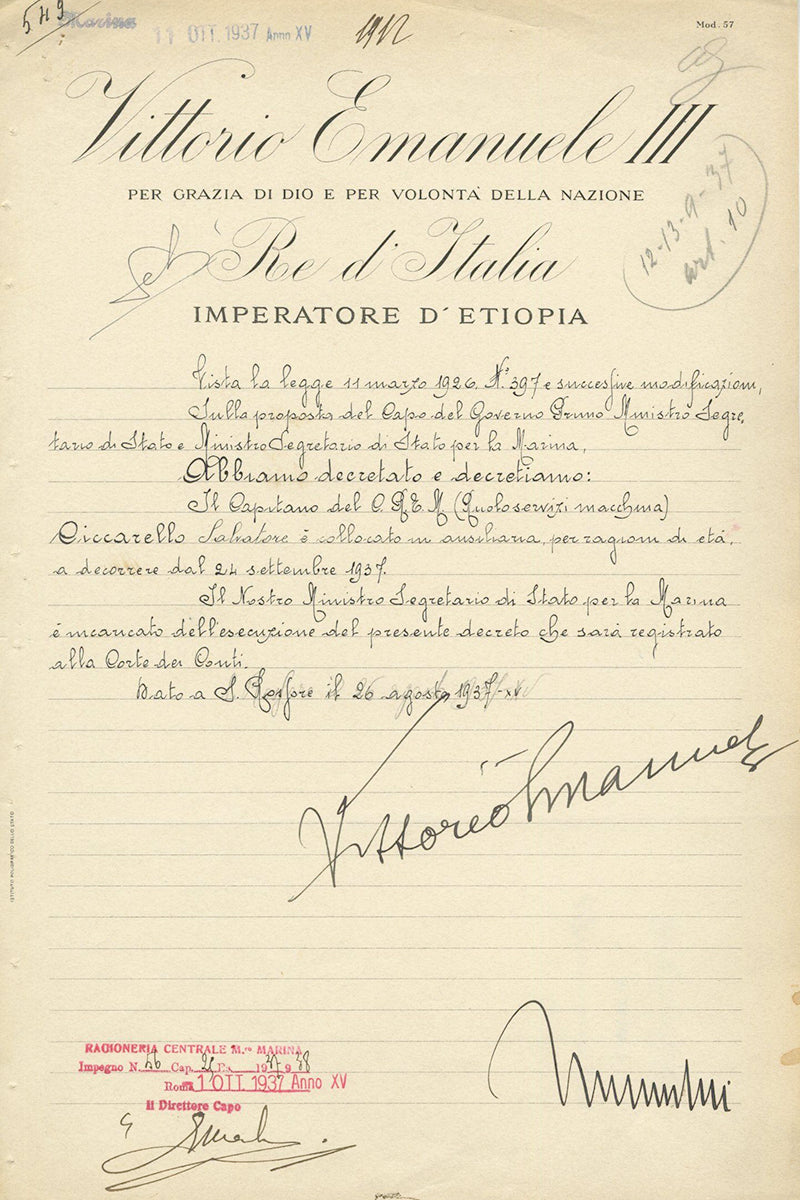 549
Marina
11 OTT. 1937 Anno XV
1912
Mod. 57
Vittorio Emanuele III
PER GRAZIA DI DIO E PER VOLONTA' DELLA NAZIONE
Re d'Italia
12-13-9-37
art. 10
IMPERATORE D'ETIOPIA
Vista la legge 11 marzo 1926, N.° 397 e successive modificazioni,
Sulla proposta del Capo del Governo Primo Ministro Segre,
tario di Stato e Ministro Segretario di Stato per la Marina,
Abbiamo decretato e decretiamo:
Il Capitano del C.R.E.M. (Ruolo servizi macchina)
Ciccarello Salvatore è collocato in ausiliaria, per ragioni di età,
a decorrere dal 24 settembre 1937.
Il Nostro Ministro Segretario di Stato per la Marina
è incaricato dell'esecuzione del presente decreto che sarà registrato
alla Corte dei Conti.
Dato a S. Rossore il 26 agosto 1937-XV
Vittorio Emanuele
ISTITUTO POLIGRAFICO DELLO STATO
RAGIONERIA CENTRALE M.ro MARINA
Impegno N. 56 Cap. 1937 938
Roma 1 OTT. 1937 Anno XV
Il Direttore Capo
Mussolini